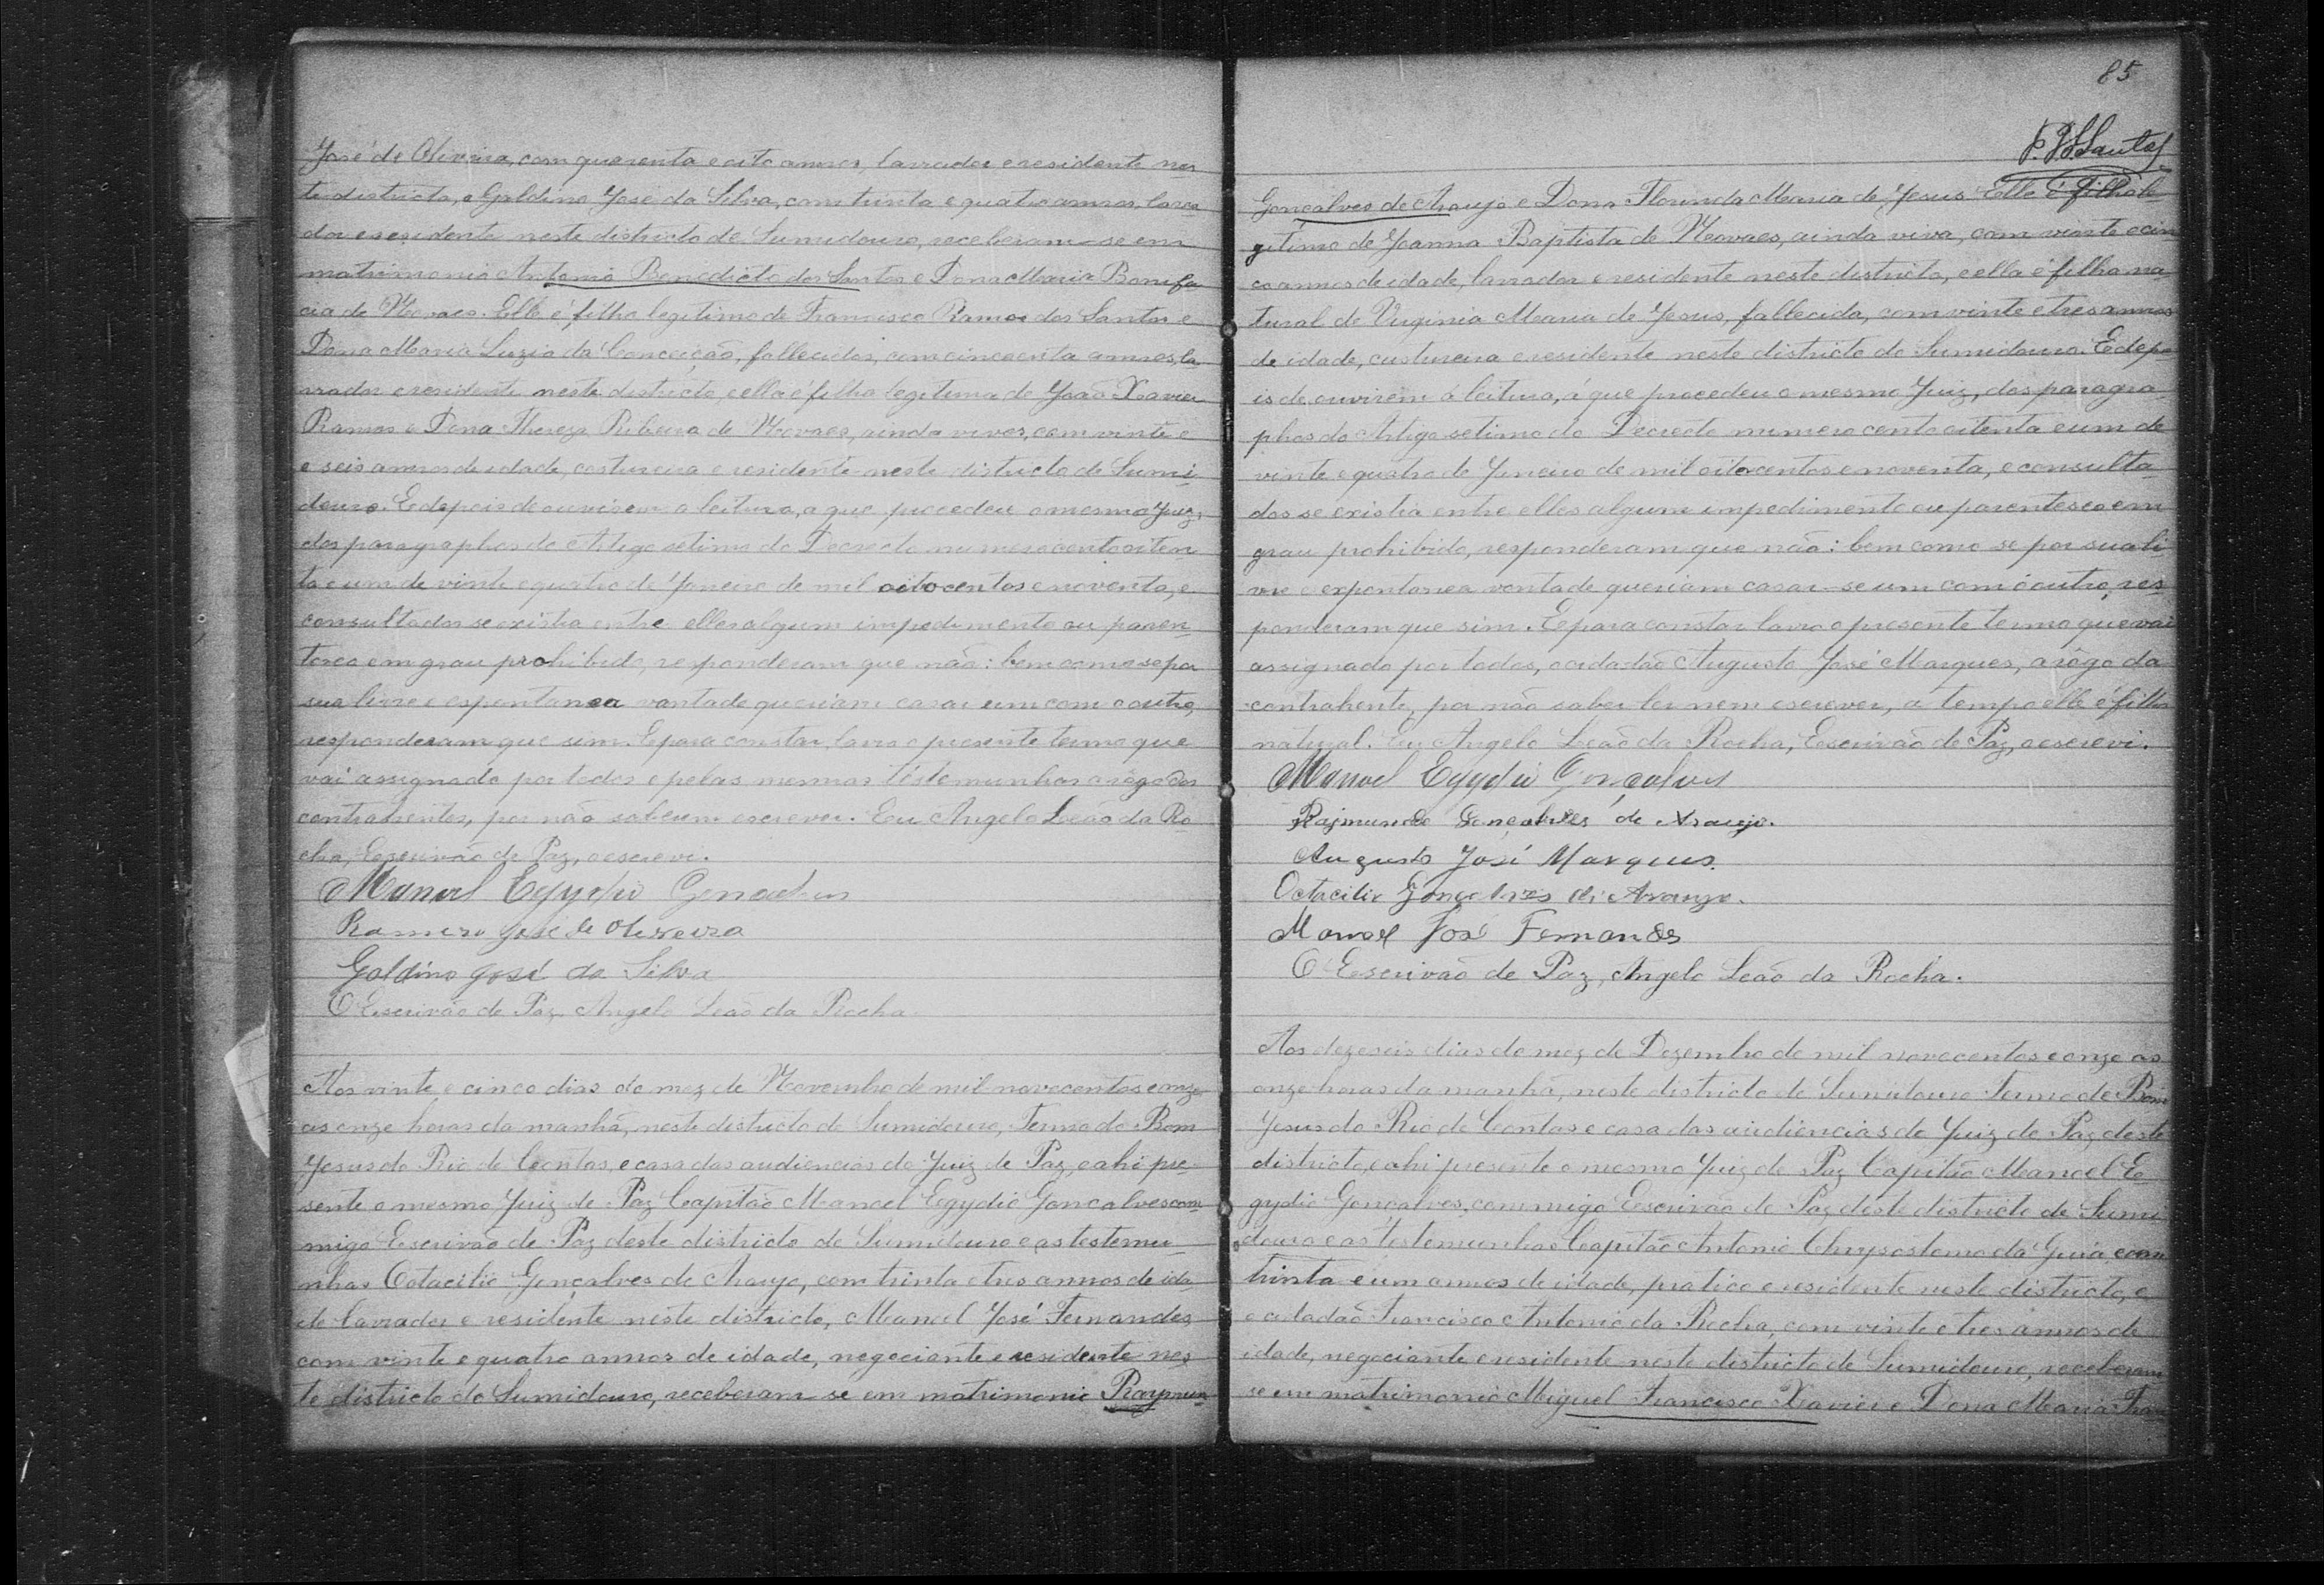 José de Oliveira, com quarenta e oito annos, lavrador e residente nes
te districto, e Galdino José da Silva, com trinta e quatro annos, lavra
dor e residente neste districto de Sumidouro, receberam-se em
matrimonio Antonio Benedicto dos Santos e Dona Maria Bonifa
cia de Novaes. Elle é filho legitimo de Francisco Ramos dos Santos e
Dona Maria Luzia da Conceição, fallecidos, com cincoenta annos, la
vrador e residente neste districto, e ella é filha legitima de João Xavier
Ramos e Dona Thereza Ribeira de Novaes, ainda vivos, com vinte e
e seis annos de idade, costureira e residente neste districto de Sumi
douro. E depois de ouvirem a leitura, a que procedeu o mesmo Juiz,
dos paragraphos do Artigo setimo do Decreto numero cento oiten
ta e um de vinte e quatro de Janeiro de mil oitocentos e noventa, e
consultados se existia entre elles algum impedimento ou paren
tesco em grau prohibido, responderam que não: bem como se por
sua livre e espontanea vontade queriam casar um com o outro,
responderam que sim. E para constar, lavro o presente termo que
vai assignado por todos e pelas mesmas testemunhas a rogo dos
contrahentes, por não saberem escrever. Eu Angelo Leão da Ro
cha, Escrivão de Paz, o escrevi.
Manoel Egydio Gonçalves
Ramiro José de Oliveira
Galdino José da Silva
O Escrivão de Paz, Angelo Leão da Rocha.
Aos vinte e cinco dias do mez de Novembro de mil novecentos e onze
as onze horas da manhã, neste districto de Sumidouro, Termo de Bom
Jesus do Rio de Contas, e casa das audiencias do Juiz de Paz, e ahi pre
sente o mesmo Juiz de Paz Capitão Manoel Egydio Gonçalves com
migo Escrivão de Paz deste districto de Sumidouro e as testemu
nhas Octacilio Gonçalves de Araujo, com trinta e tres annos de ida
de lavrador e residente neste districto, Manoel José Fernandes,
com vinte e quatro annos de idade, negociante e residente nes
te districto de Sumidouro, receberam-se em matrimonio Raymun
85
Santos
Gonçalves de Araujo e Dona Florinda Maria de Jesus. Elle é filho le
gitimo de Joanna Baptista de Novaes, ainda viva, com vinte e cin
co annos de idade, lavrador e residente neste districto, e ella é filha na
tural de Virginia Maria de Jesus, fallecida, com vinte e tres annos
de idade, custureira e residente neste districto de Sumidouro. E depo
is de ouvirem á leitura, á que procedeu o mesmo Juiz, dos paragra
phos do Artigo setimo do Decreto numero cento oitenta e um de
vinte e quatro de Janeiro de mil oitocentos e noventa, e consulta
dos se existia entre elles algum impedimento ou parentesco em
grau prohibido, responderam que não: bem como se por sua li
vre e expontanea vontade queriam casar-se um com o outro, res
ponderam que sim. E para constar lavro o presente termo que vai
assignado por todos, o cidadão Augusto José Marques, a rôgo da
contrahente, por não saber ler nem escrever, a tempo elle é filho
natural. Eu Angelo Leão da Rocha, Escrivão de Paz, o escrevi.
Manoel Egydio Gonçalves
Rajmundo Gonçalves de Araujo.
Augusto José Marques.
Octacilio Gonçalves de Araujo.
Manoel José Fernandes
O Escrivão de Paz, Angelo Leão da Rocha.
Aos dezeseis dias do mez de Dezembro de mil novecentos e onze as
onze horas da manhã, neste districto de Sumidouro Termo de Bom
Jesus do Rio de Contas e casa das audiencias do Juiz de Paz deste
districto, e ahi presente o mesmo Juiz de Paz Capitão Manoel E
gydio Gonçalves, commigo Escrivão de Paz deste districto de Sumi
douro e as testemunhas Capitão Antonio Chrysostomo da Guia, com
trinta e um annos de idade, pratico e residente neste districto, e
o cidadão Francisco Antonio da Rocha, com vinte e tres annos de
idade, negociante e residente neste districto de Sumidouro, receberam
se em matrimonio Miguel Francisco Xavier e Dona Maria Fran